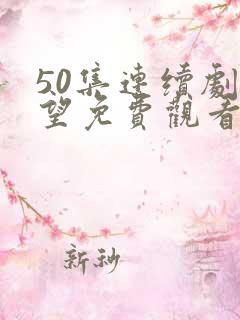 50集連續劇
望免費觀看
新秘